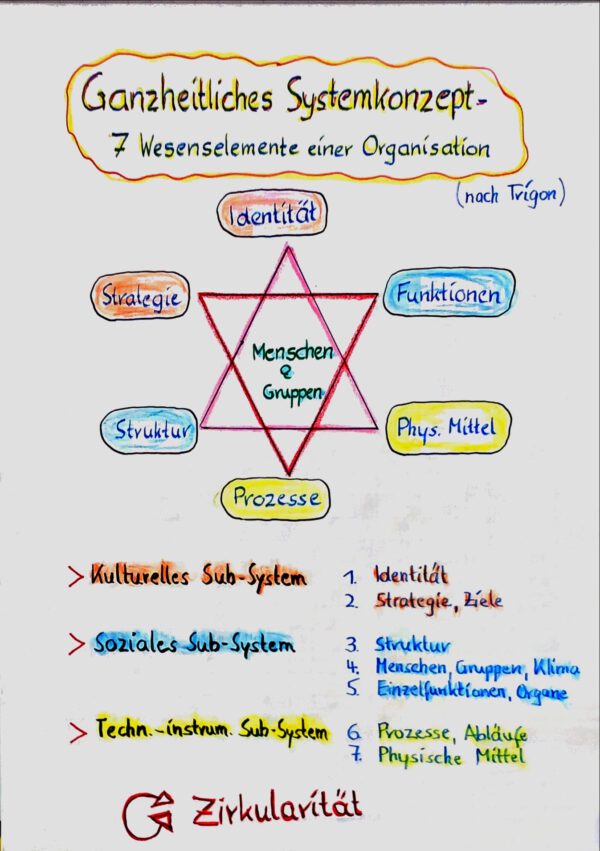 Ganzheitliches Systemkonzept-
7 Wesenselemente einer Organisation
(nach Trigon)
Identität
Strategie
Funktionen
Menschen
&
Gruppen
Struktur
Phys. Mittel
Prozesse
> Kulturelles Sub-System
1. Identität
2. Strategie, Ziele
> Soziales Sub-System
3. Struktur
4. Menschen, Gruppen, Klima
5. Einzelfunktionen, Organe
> Techn.-instrum. Sub-System
6. Prozesse, Abläufe
7. Physische Mittel
Zirkularität